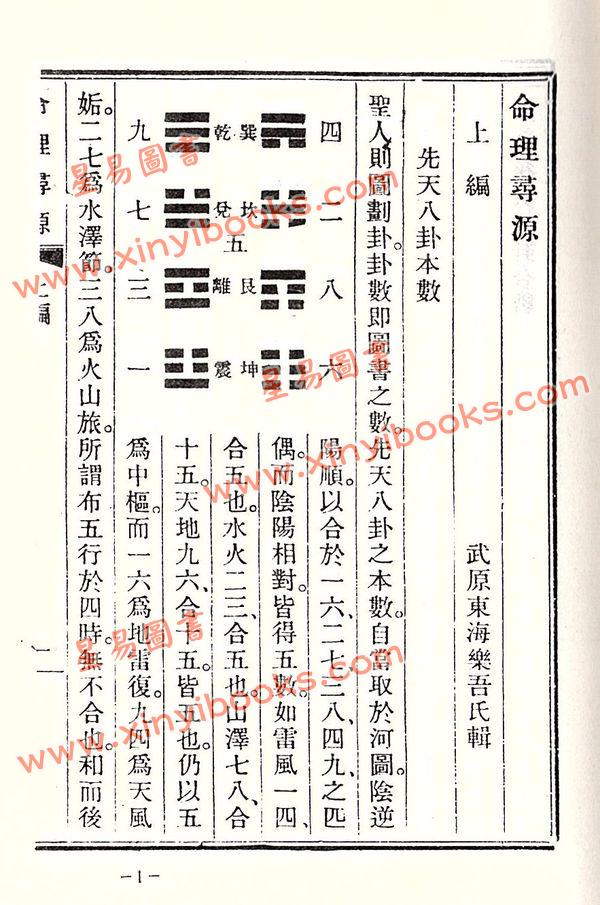 命理尋源
上編
武原東海樂吾氏輯
先天八卦本數
聖人則圖劃卦。卦數即圖書之數。先天八卦之本數。自當取於河圖。陰逆
陽順。以合於一六、二七、三八、四九、之匹
偶。而陰陽相對。皆得五數。如雷風一四、
合五也。水火二三、合五也。山澤七八、合
十五。天地九六、合十五。皆五也。仍以五
爲中樞。而一六爲地雷復。九四爲天風
四 二 八 六
巽 坎 艮 坤
五
乾 兌 離 震
九 七 三 一
姤。二七爲水澤節。三八爲火山旅。所謂布五行於四時。無不合也。和而後
命理尋源 上編 一
-1-
星易圖書
www.xinyibooks.com
星易圖書
www.xinyibooks.com
星易圖書
www.xinyibooks.com
星易圖書
www.xinyibooks.com